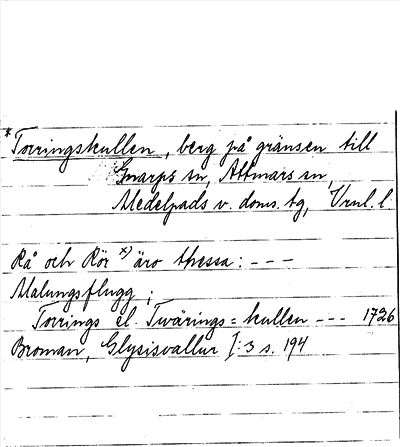 * Torringskullen, berg på gränsen till
Gnarps sn, Attmars sn,
Medelpads v. doms. tg, Vrnl. l.
Rå och Rör x) äro thessa: - - -
Malungsflugg;
Torrings el. Twärings=kullen - - - 1726
Broman, Glysisvallur I:3 s. 194